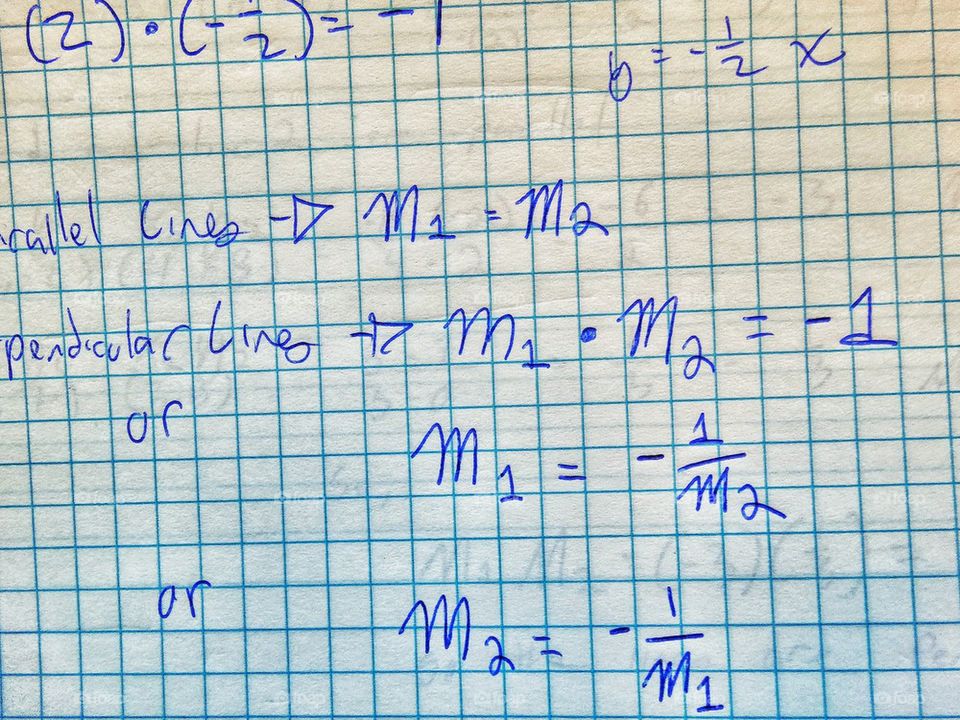 (2)·(-1/2)= -1
b = -1/2 x
rallel Lines -▷ m₁ = m₂
pendicular Lines -▷ m₁ · m₂ = -1
or
m₁ = -1/m₂
or
m₂ = -1/m₁